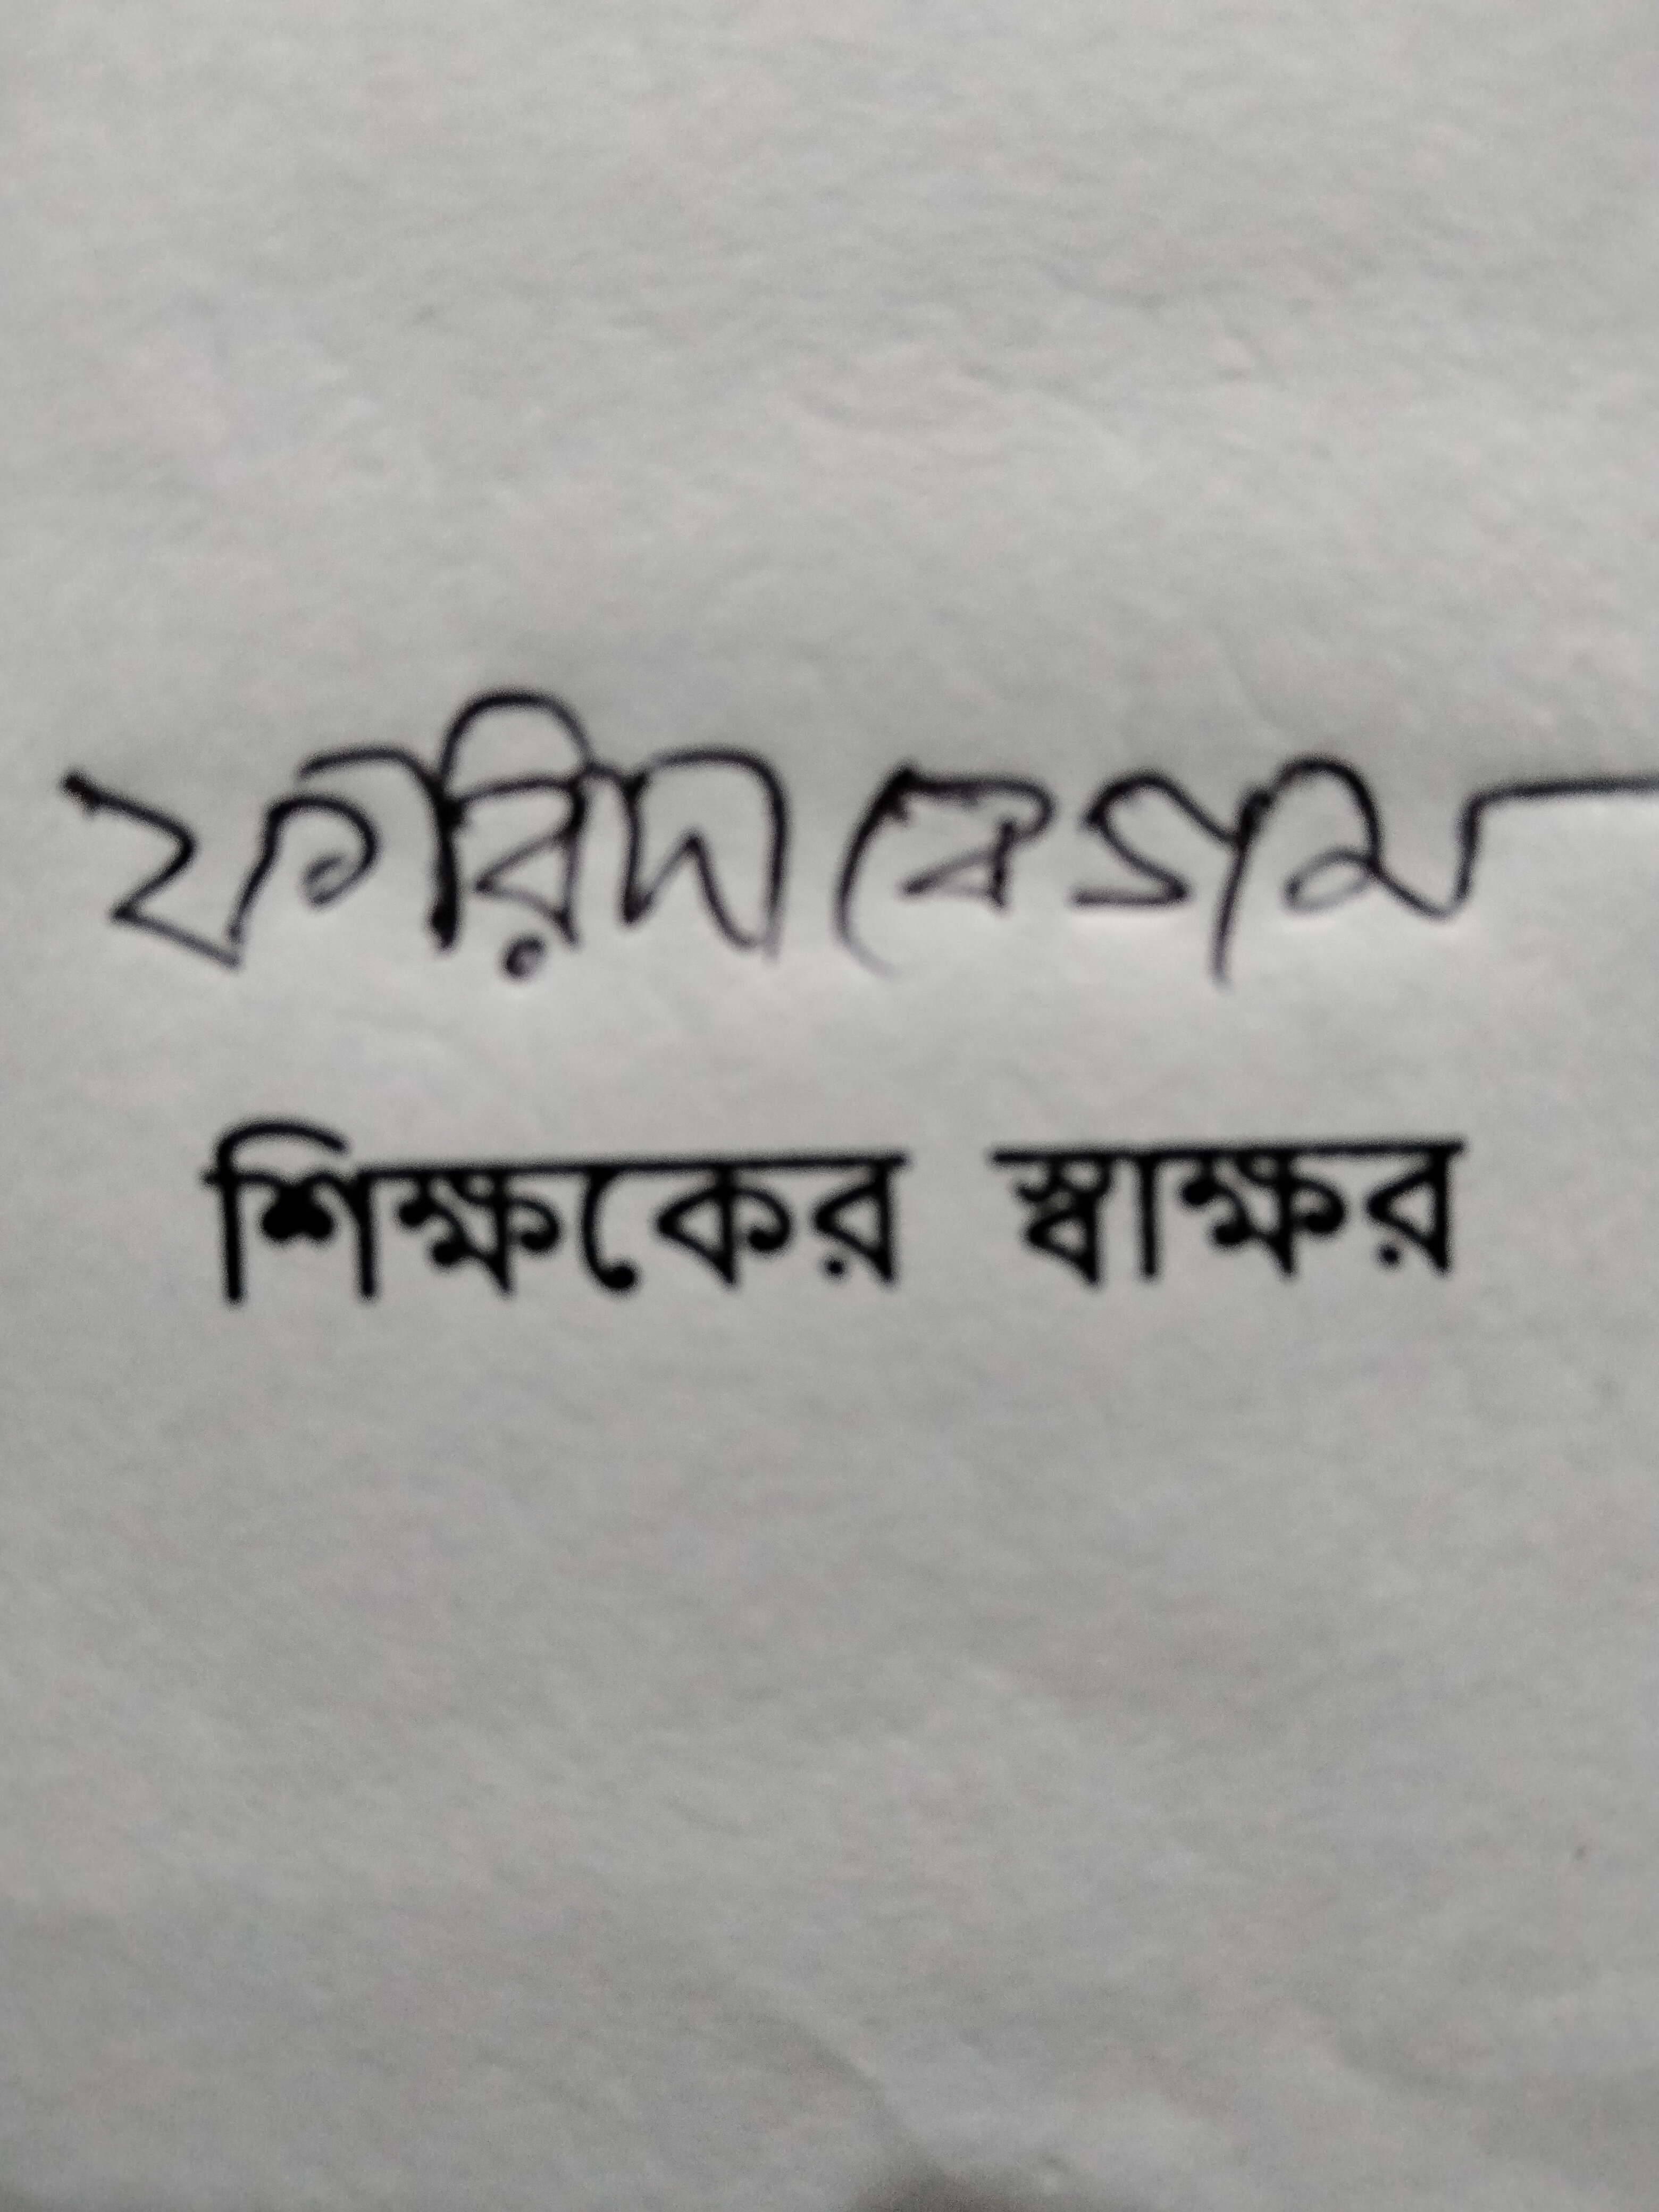 ফরিদা বেগম
শিক্ষকের স্বাক্ষর